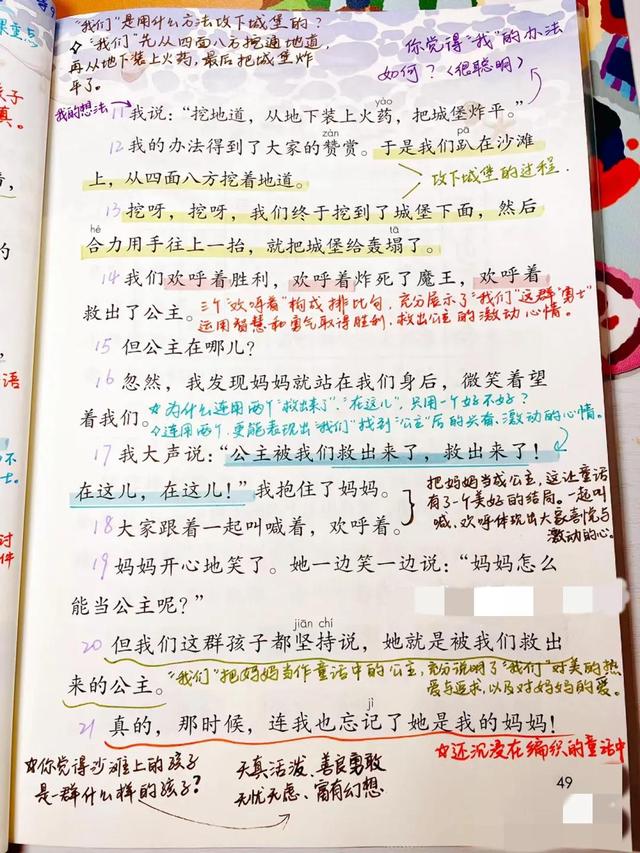 "我们"是用什么方法攻下城堡的?
☆"我们"先从四面八方挖通地道,
再从地下装上火药,最后把城堡炸
平了。
你觉得"我"的办法
如何?(很聪明)
我的想法
yào
11我说:“挖地道,从地下装上火药,把城堡炸平。”
zàn pā
12我的办法得到了大家的赞赏。于是我们趴在沙滩
上,从四面八方挖着地道。
攻下城堡的过程.
13挖呀,挖呀,我们终于挖到了城堡下面,然后
hé tā
合力用手往上一抬,就把城堡给轰塌了。
14我们欢呼着胜利,欢呼着炸死了魔王,欢呼着
救出了公主。
三个"欢呼着"构成排比句,充分展示了"我们"这群"勇士"
运用智慧和勇气取得胜利,救出公主的激动心情。
15但公主在哪儿?
16忽然,我发现妈妈就站在我们身后,微笑着望
着我们。
☆为什么连用两个"救出来了"、"在这儿",只用一个好不好?
连用两个,更能表现出"我们"找到"公主"后的兴奋、激动的心情。
17我大声说:“公主被我们救出来了,救出来了!
在这儿,在这儿!”我抱住了妈妈。
18大家跟着一起叫喊着,欢呼着。
把妈妈当成公主,这让童话
有了一个美好的结局。一起叫
喊、欢呼体现出大家喜悦与
激动的心。
19妈妈开心地笑了。她一边笑一边说:“妈妈怎么
能当公主呢?”
jiān chí
20但我们这群孩子都坚持说,她就是被我们救出
来的公主。
"我们"把妈妈当作童话中的公主,充分说明了"我们"对美的热
爱与追求,以及对妈妈的爱。
jì
21真的,那时候,连我也忘记了她是我的妈妈!
☆还沉浸在编织的童话中
☆你觉得沙滩上的孩子
是一群什么样的孩子?
天真活泼、善良勇敢
无忧无虑、富有幻想
49